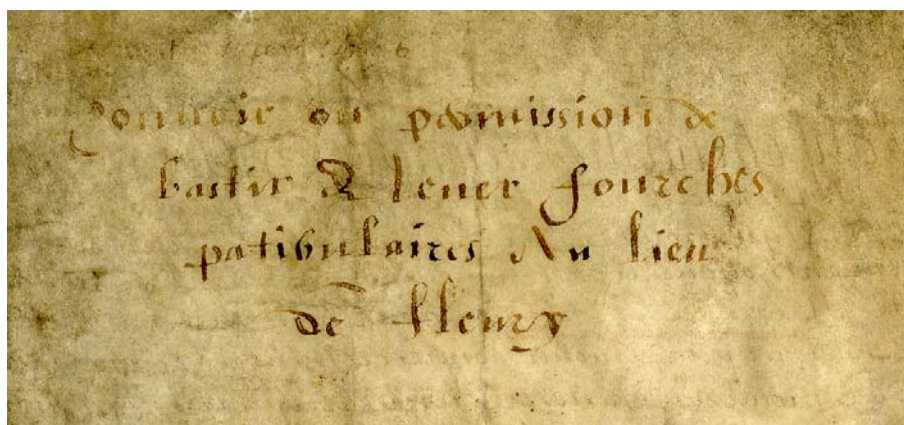 Pouuoir ou permission de
bastir & leuer fourches
patibulaires Au lieu
de fleury